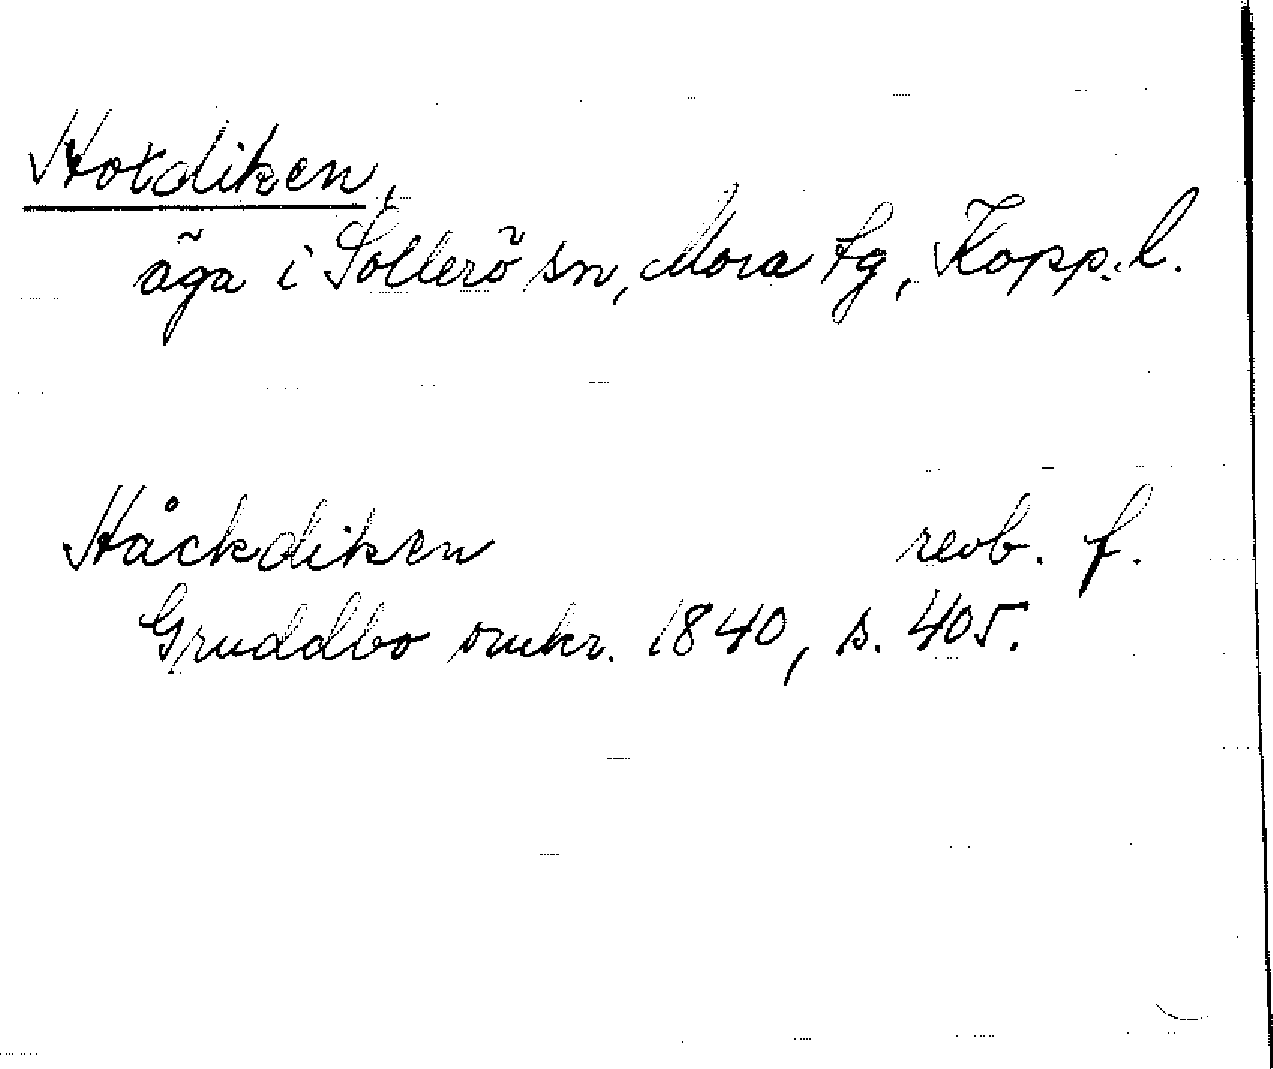 Hotdiken,
äga i Sollerö sn, Mora tg, Kopp. l.
Håckdiken revb. f.
Gruddbo omkr. 1840, s. 405.